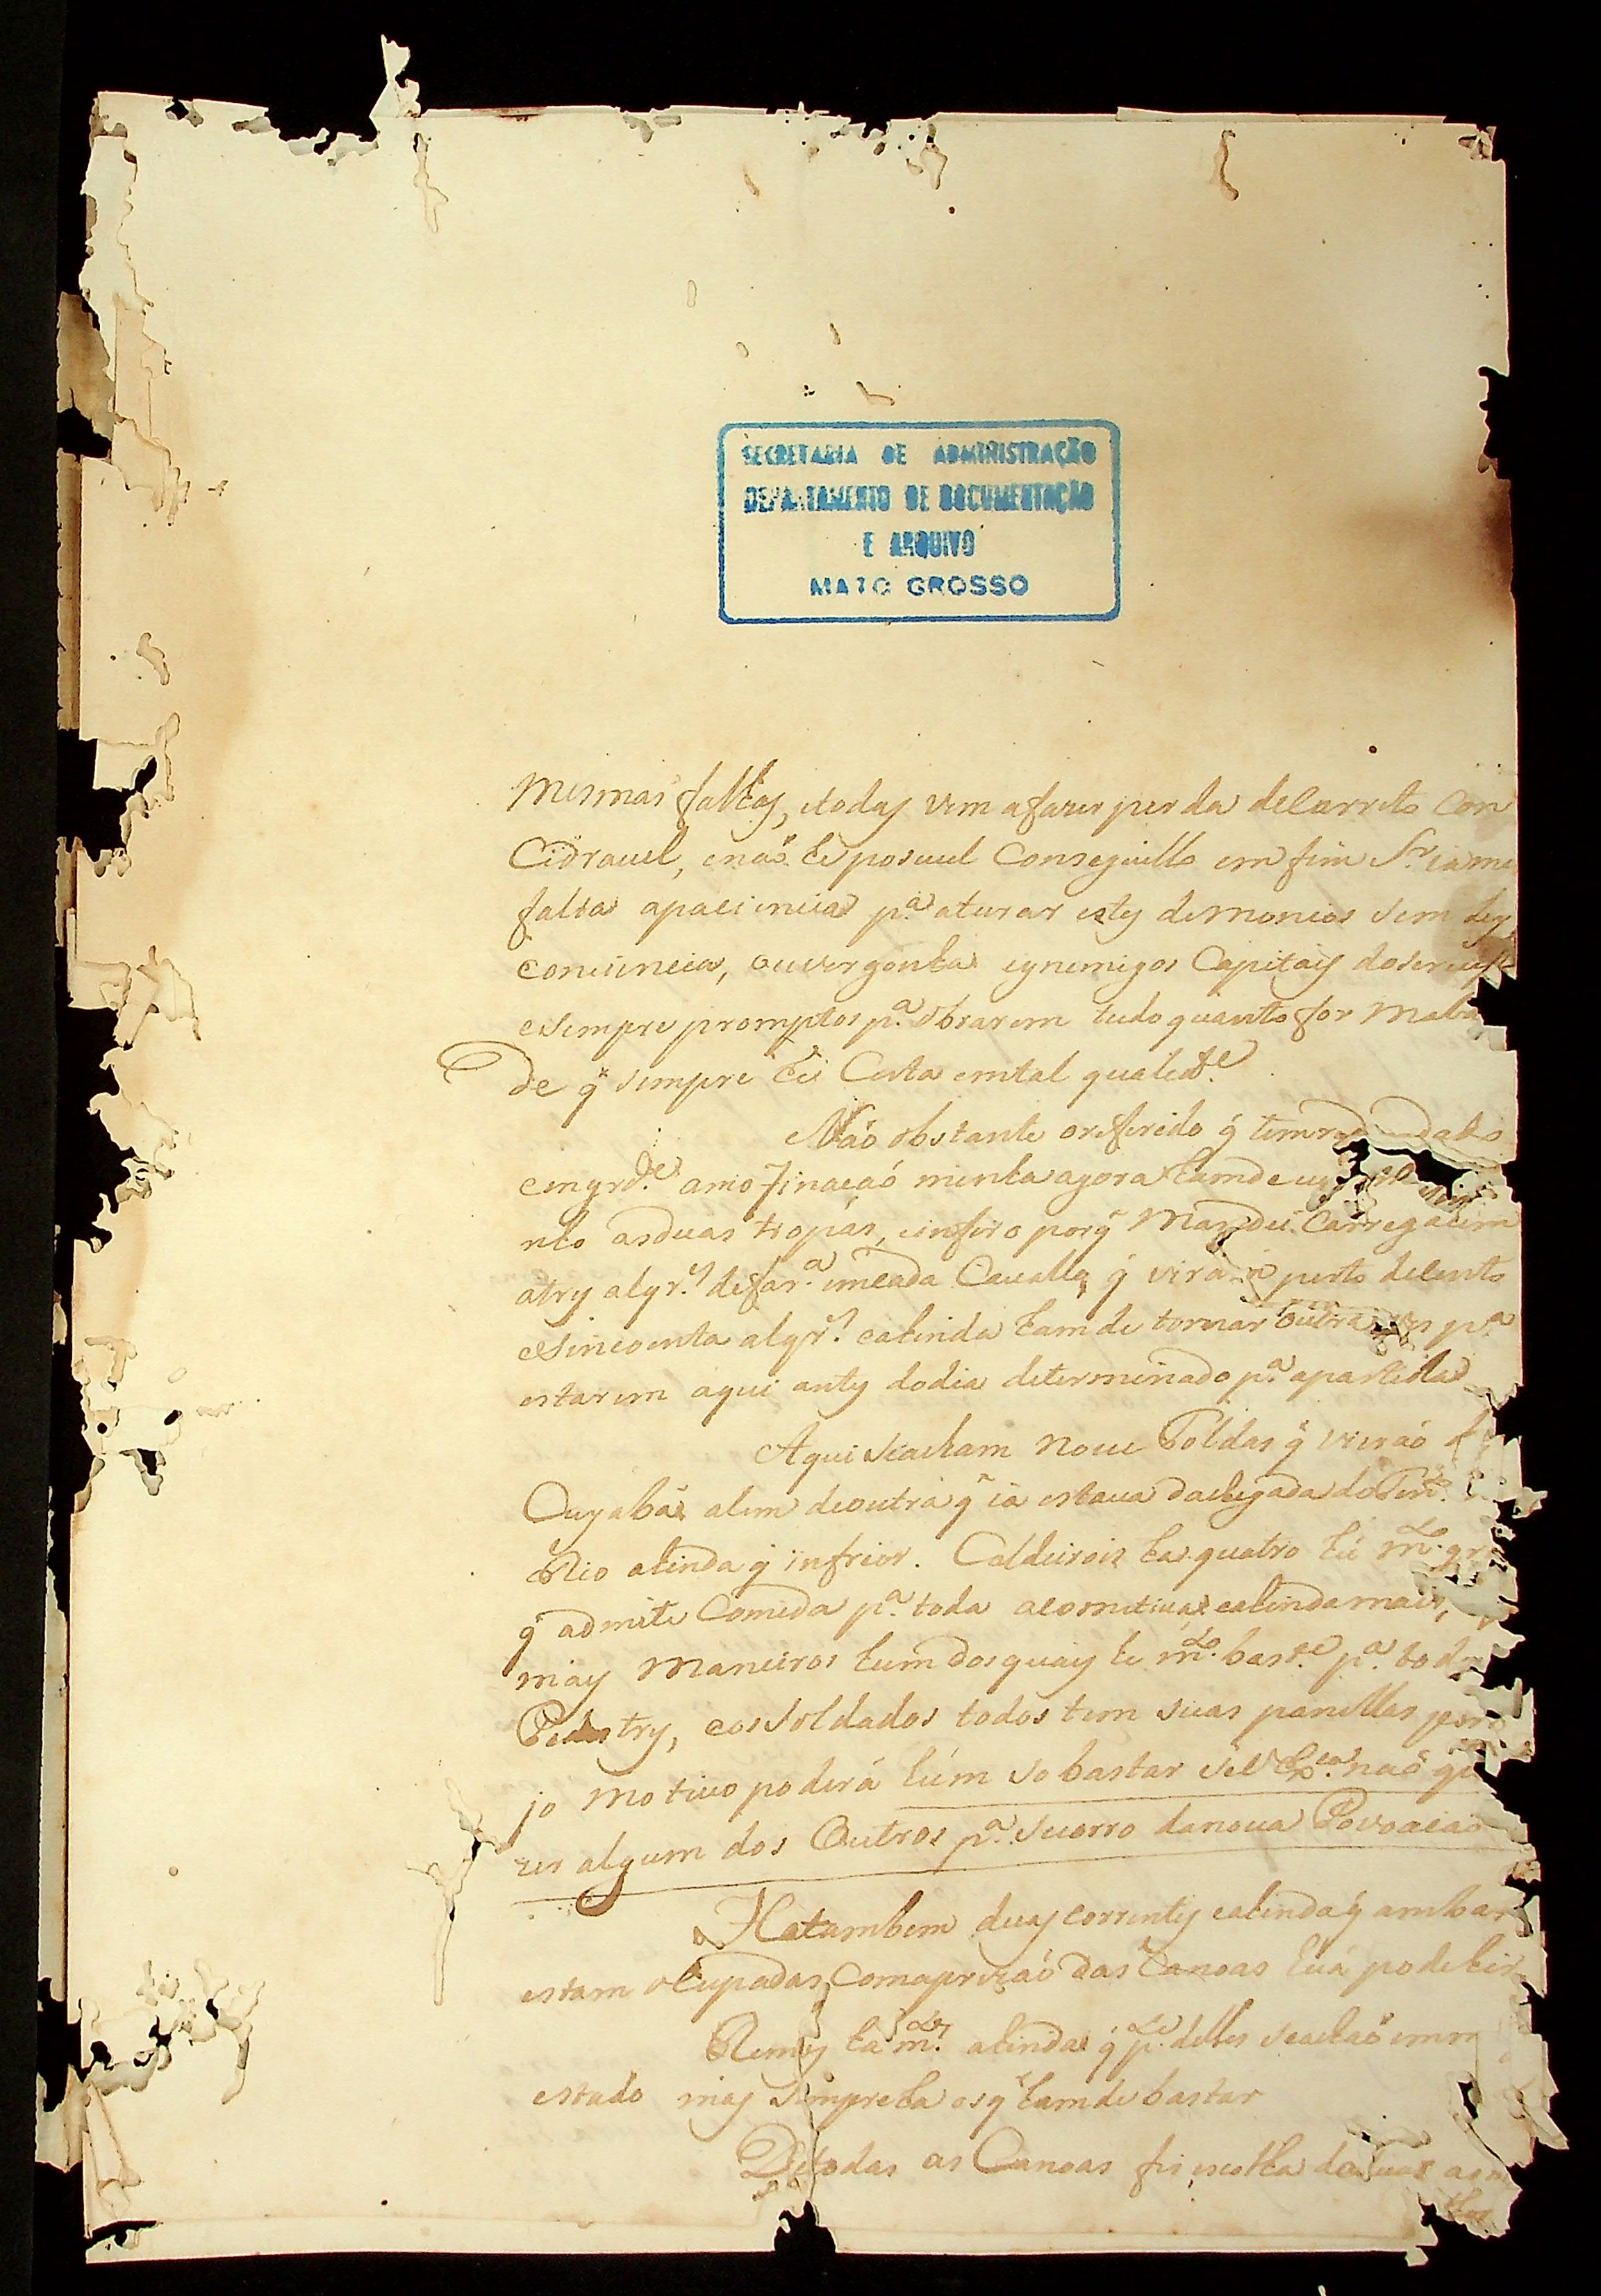 SECRETARIA DE ADMINISTRAÇÃO
DEPARTAMENTO DE DOCUMENTAÇÃO
E ARQUIVO
MATO GROSSO
mesmas faltas, etodas vem afazer perda decarreto Con
Cidravel, enaõ he posuvel Conseguillo em fim Sr. ia me
falta apaciencia pa. aturar estes demonios sem
conciencia, ouvergonha eynemigos Capitais doservisso
esempre promptos pa. obrarem tudo quanto for
de q̃ sempre he Custa emtal qualide.
Não obstante oreferido q̃
emgrde. amofinacaõ minha agora hamde
nto asduas tropas, infiro porq̃ Mandei Carregarem
atres algrs. defara. emcada Cavallo q̃ virá a perto decento
esincoenta algrs. eahinda hamde tornar outra ves pa.
estarem aqui antes dodia determinado pa. apartida
Aqui seacham nove Toldas q̃ vieraõ
Cuyabá alem deoutra q̃ ia estava dachegada do
Rio ahinda q̃ infrior. Caldeirois ha quatro hú mto.
q̃ admite Comida pa. toda acomitiva eahinda mais,
mais Maneiros humdosquais he mto. baste. pa. todos
Pedestres, eos Soldados todos tem suas panellas
jo motivo poderá húm so bastar seV Exca. naõ
zer algum dos Outros pa. sucorro danova Povoacaõ
Hatambem duas correntes eahinda q̃ ambas
estam ocupadas Comaprizaõ das Canoas huá podehir
Remos ha mtos. ahinda q̃ pte. delles seachaõ
estado mas sempreha osq̃ hamde bastar
Detodas as Canoas fis escolha